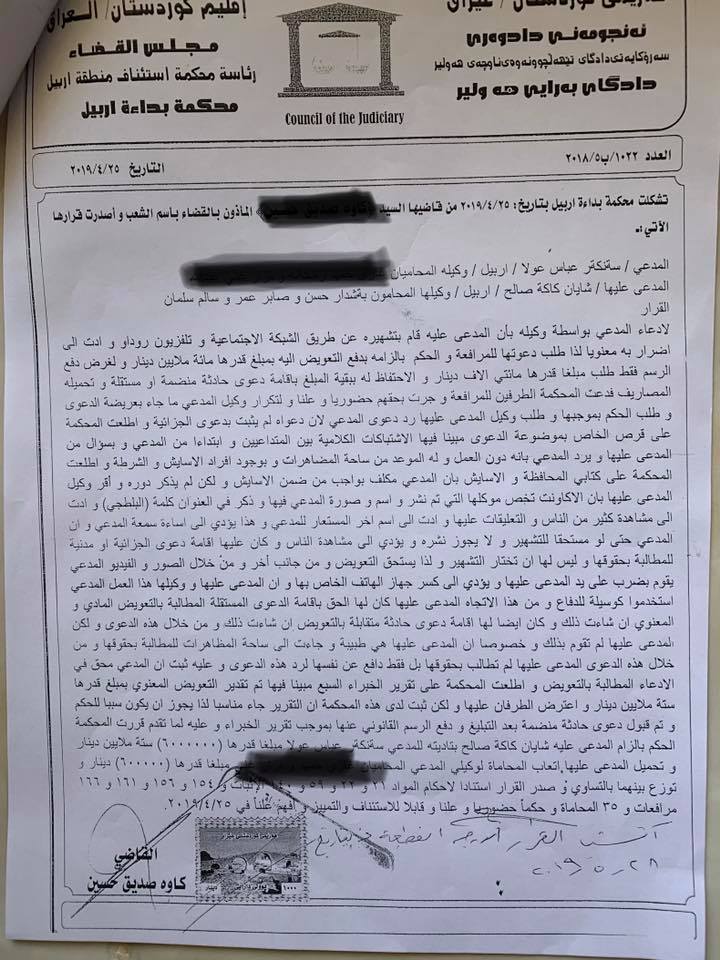 إقليم كوردستان/ العراق
مجلس القضاء
رئاسة محكمة استئناف منطقة اربيل
محكمة بداءة اربيل
هەرێمی كوردستان/ عێراق
ئەنجومەنی دادوەری
سەرۆكایەتی دادگای تێهەڵچوونەوەی ناوچەی هەولێر
دادگای بەرایی هەولێر
Council of the Judiciary
العدد ١٠٢٢/ب٢٠١٨/٥
التاريخ ٢٠١٩/٤/٢٥
تشكلت محكمة بداءة اربيل بتاريخ: ٢٠١٩/٤/٢٥ من قاضيها السيد الماذون بالقضاء باسم الشعب و أصدرت قرارها
الأتي:ـ
المدعي / سەنكەر عباس عولا / اربيل / وكيله المحاميان
المدعى عليها / شايان كاكة صالح / اربيل / وكيلها المحامون بةشدار حسن و صابر عمر و سالم سلمان
القرار
لادعاء المدعي بواسطة وكيله بأن المدعى عليه قام بتشهيره عن طريق الشبكة الاجتماعية و تلفزيون روداو و ادت الى
اضرار به معنويا لذا طلب دعوتها للمرافعة و الحكم بالزامه بدفع التعويض اليه بمبلغ قدرها مائة ملايين دينار و لغرض دفع
الرسم فقط طلب مبلغا قدرها مائتي الاف دينار و الاحتفاظ له ببقية المبلغ باقامة دعوى حادثة منضمة او مستقلة و تحميله
المصاريف فدعت المحكمة الطرفين للمرافعة و جرت بحقهم حضوريا و علنا و لتكرار وكيل المدعي ما جاء بعريضة الدعوى
و طلب الحكم بموجبها و طلب وكيل المدعى عليها رد دعوى المدعي لان دعواه لم يثبت بدعوى الجزائية و اطلعت المحكمة
على قرص الخاص بموضوعة الدعوى مبينا فيها الاشتباكات الكلامية بين المتداعيين و ابتداءا من المدعي و بسؤال من
المدعى عليها و يرد المدعي بانه دون العمل و له الموعد من ساحة المضاهرات و بوجود افراد الاسايش و الشرطة و اطلعت
المحكمة على كتابي المحافظة و الاسايش بان المدعي مكلف بواجب من ضمن الاسايش و لكن لم يذكر دوره و أقر وكيل
المدعى عليها بان الاكاونت تخص موكلها التي تم نشر و اسم و صورة المدعي فيها و ذكر في العنوان كلمة (البلطجي) و ادت
الى مشاهدة كثير من الناس و التعليقات عليها و ادت الى اسم اخر المستعار للمدعي و هذا يؤدي الى اساءة سمعة المدعي و ان
المدعي حتى لو مستحقا للتشهير و لا يجوز نشره و يؤدي الى مشاهدة الناس و كان عليها اقامة دعوى الجزائية او مدنية
للمطالبة بحقوقها و ليس لها ان تختار التشهير و لذا يستحق التعويض و من جانب أخر و من خلال الصور و الفيديو المدعي
يقوم بضرب على يد المدعى عليها و يؤدي الى كسر جهاز الهاتف الخاص بها و ان المدعى عليها و وكيلها هذا العمل المدعي
استخدموا كوسيلة للدفاع و من هذا الاتجاه المدعى عليها كان لها الحق باقامة الدعوى المستقلة المطالبة بالتعويض المادي و
المعنوي ان شاءت ذلك و كان ايضا لها اقامة دعوى حادثة متقابلة بالتعويض ان شاءت ذلك و من خلال هذه الدعوى و لكن
المدعى عليها لم تقوم بذلك و خصوصا ان المدعى عليها هي طبيبة و جاءت الى ساحة المظاهرات للمطالبة بحقوقها و من
خلال هذه الدعوى المدعى عليها لم تطالب بحقوقها بل فقط دافع عن نفسها لرد هذه الدعوى و عليه ثبت ان المدعي محق في
الادعاء المطالبة بالتعويض و اطلعت المحكمة على تقرير الخبراء السبع مبينا فيها تم تقدير التعويض المعنوي بمبلغ قدرها
ستة ملايين دينار و اعترض الطرفان عليها و لكن ثبت لدى هذه المحكمة ان التقرير جاء مناسبا لذا يجوز ان يكون سببا للحكم
و تم قبول دعوى حادثة منضمة بعد التبليغ و دفع الرسم القانوني عنها بموجب تقرير الخبراء و عليه لما تقدم قررت المحكمة
الحكم بالزام المدعى عليه شايان كاكة صالح بتاديته للمدعي سەنكەر عباس عولا مبلغا قدرها (٦٠٠٠٠٠٠) ستة ملايين دينار
و تحميل المدعى عليها اتعاب المحاماة لوكيلي المدعي المحاميان مبلغا قدرها (٦٠٠٠٠٠) دينار و
توزع بينهما بالتساوي و صدر القرار استنادا لاحكام المواد ٢١ و ٢٢ و ٥٩ و الإثبات و ١٥٤ و ١٥٦ و ١٦١ و ١٦٦
مرافعات و ٣٥ المحاماة و حكماً حضوريا و علنا و قابلا للاستئناف والتمييز و أفهم علناً في ٢٠١٩/٤/٢٥.
القرار الدرجة القطعية بتاريخ
٢٠١٩/٥/٢٨
القاضي
كاوه صديق حسين
١٠٠٠